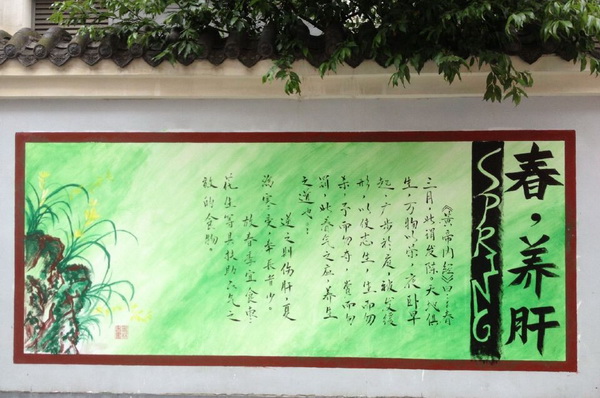 春，养肝
SPRING
《黄帝内经》曰：春
三月，此谓发陈。天地俱
生，万物以荣，夜卧早
起，广步于庭，被发缓
形，以使志生，生而勿
杀，予而勿夺，赏而勿
罚，此春气之应，养生
之道也。
逆之则伤肝，夏
为寒变，奉长者少。
故春季宜食
花生等具扶助气之
效的食物。